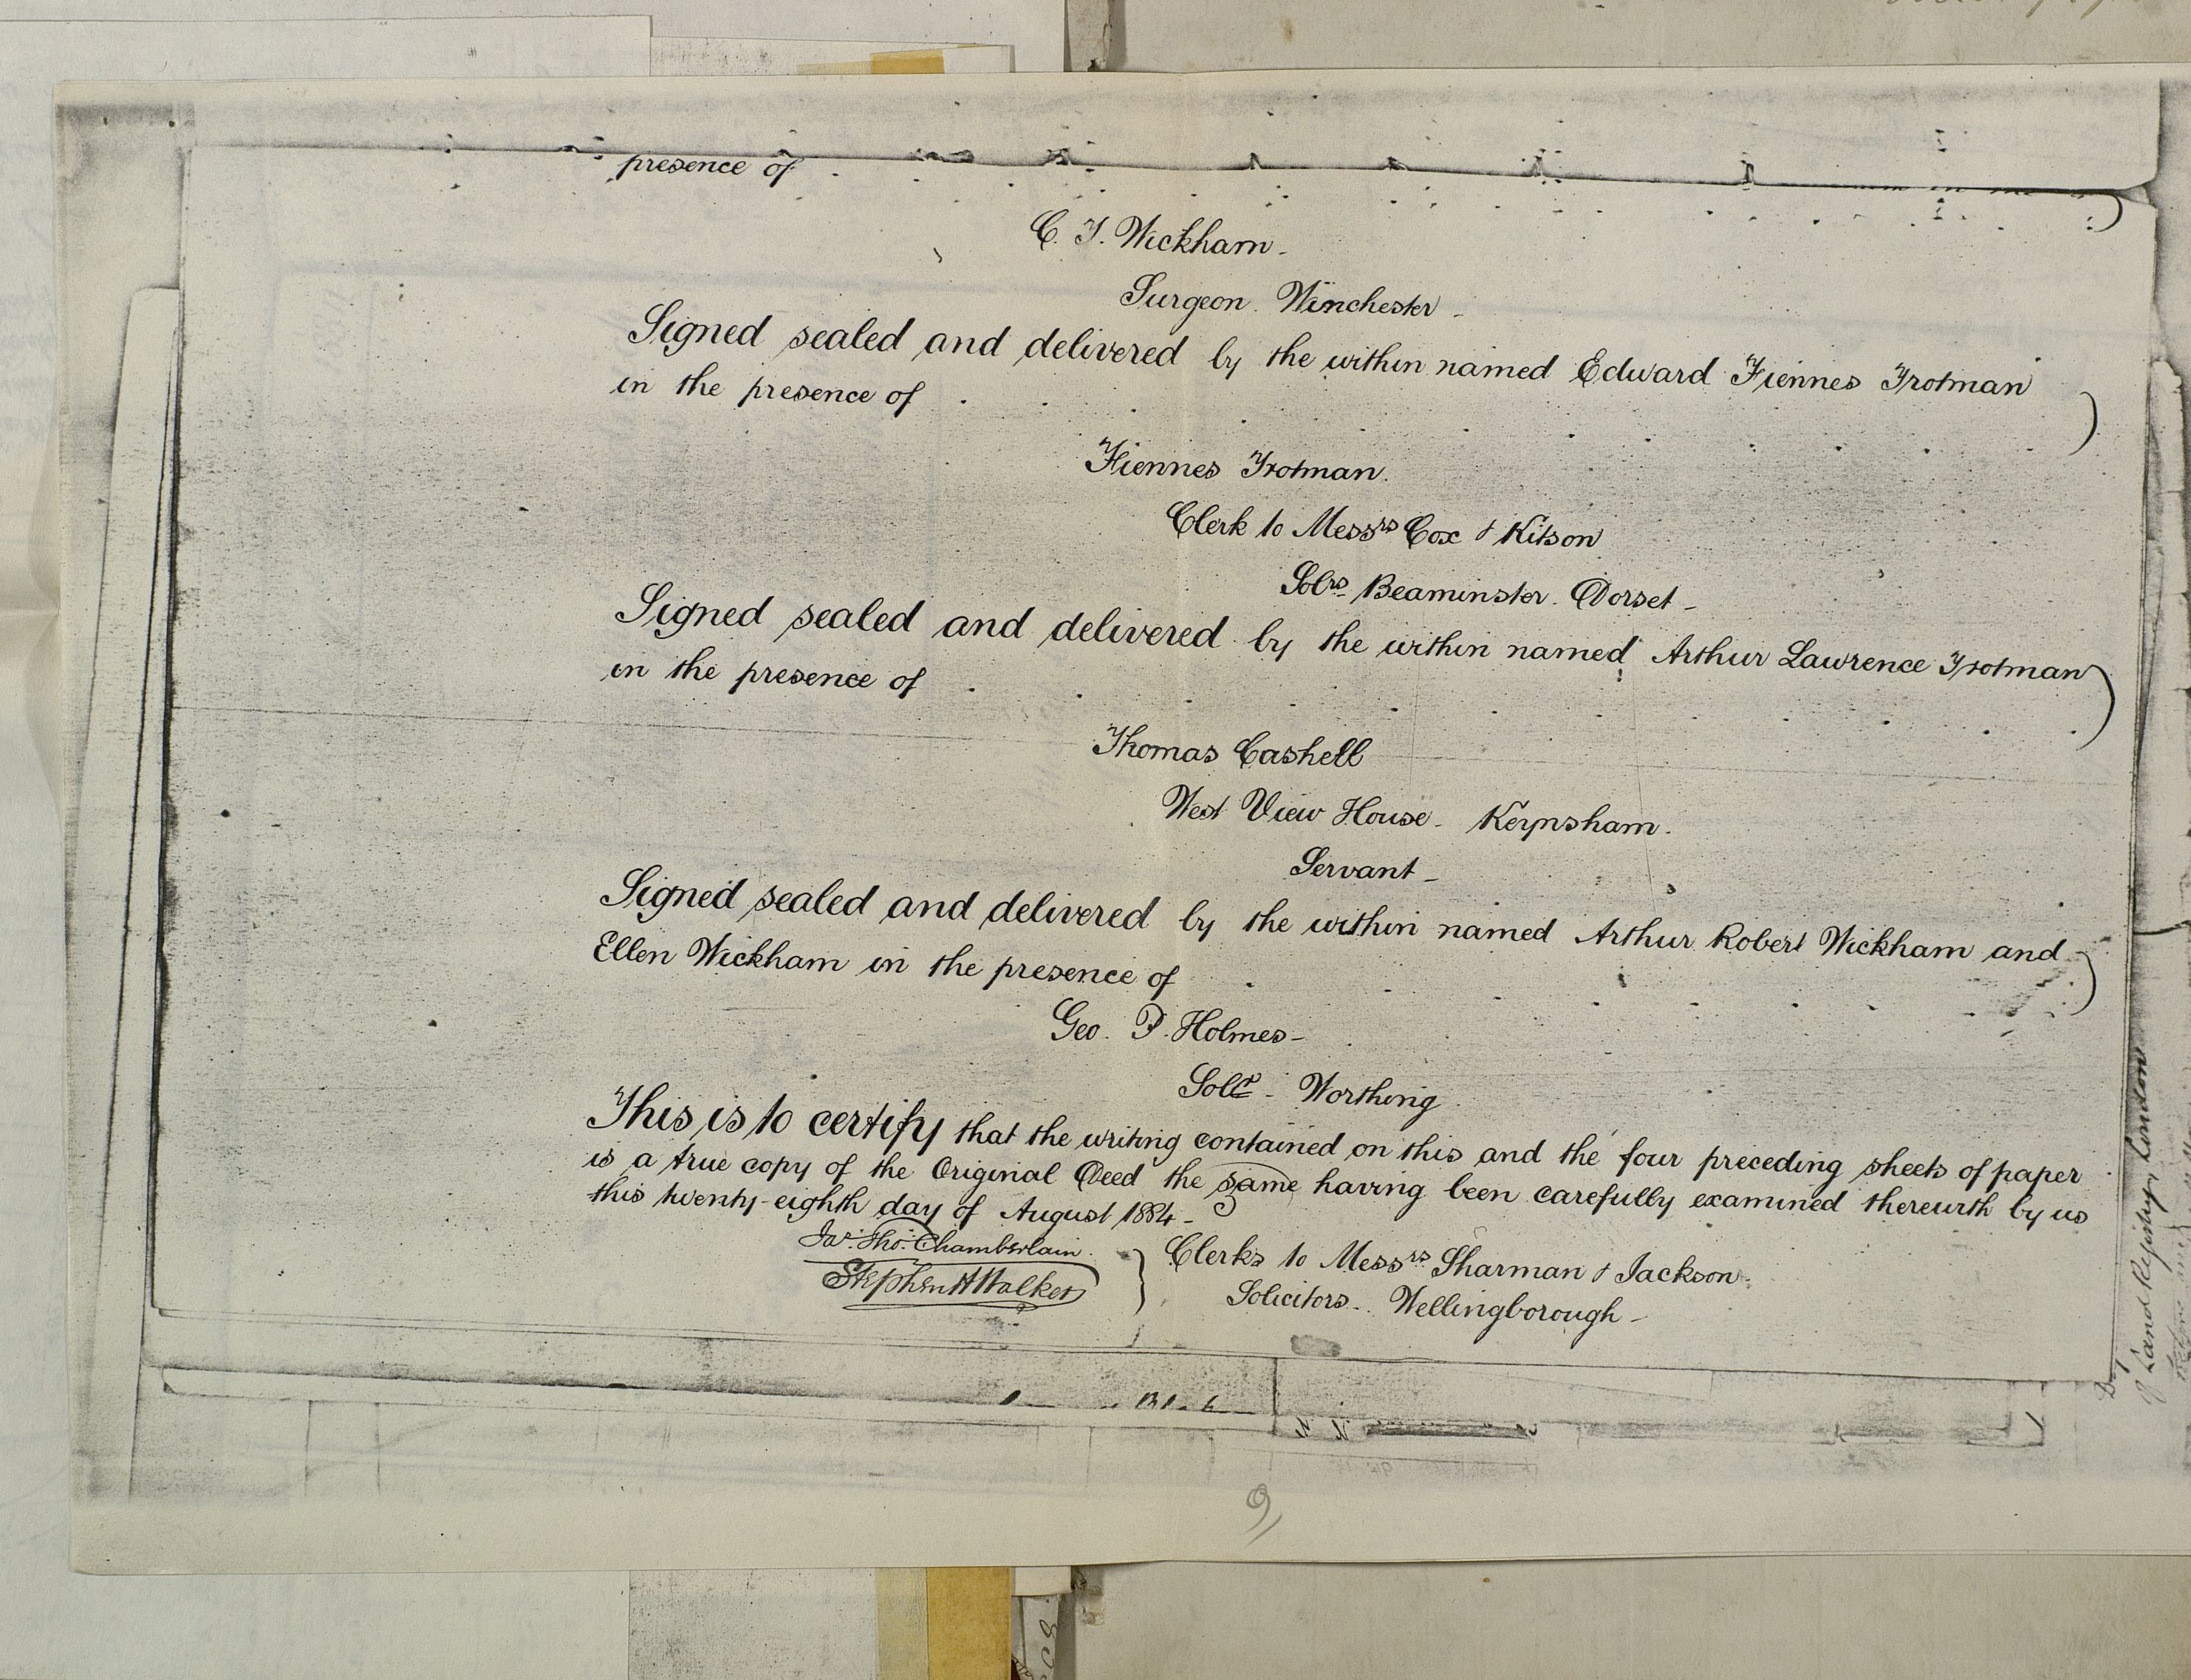 presence of
C. T. Wickham -
Surgeon. Winchester -
Signed sealed and delivered by the within named Edward Fiennes Trotman
in the presence of
Fiennes Trotman.
Clerk to Messrs Cox & Kitson
Solrs Beaminster. Dorset -
Signed sealed and delivered by the within named Arthur Lawrence Trotman
in the presence of
Thomas Cashell
West View House - Keynsham.
Servant -
Signed sealed and delivered by the within named Arthur Robert Wickham and
Ellen Wickham in the presence of
Geo. P. Holmes -
Solr - Worthing
This is to certify that the writing contained on this and the four preceding sheets of paper
is a true copy of the Original Deed the same having been carefully examined therewith by us
this twenty-eighth day of August 1884 -
Jas. Tho. Chamberlain.
Stephen H Walker
Clerks to Messrs Sharman & Jackson.
Solicitors - Wellingborough -
of Land Registry, London
9